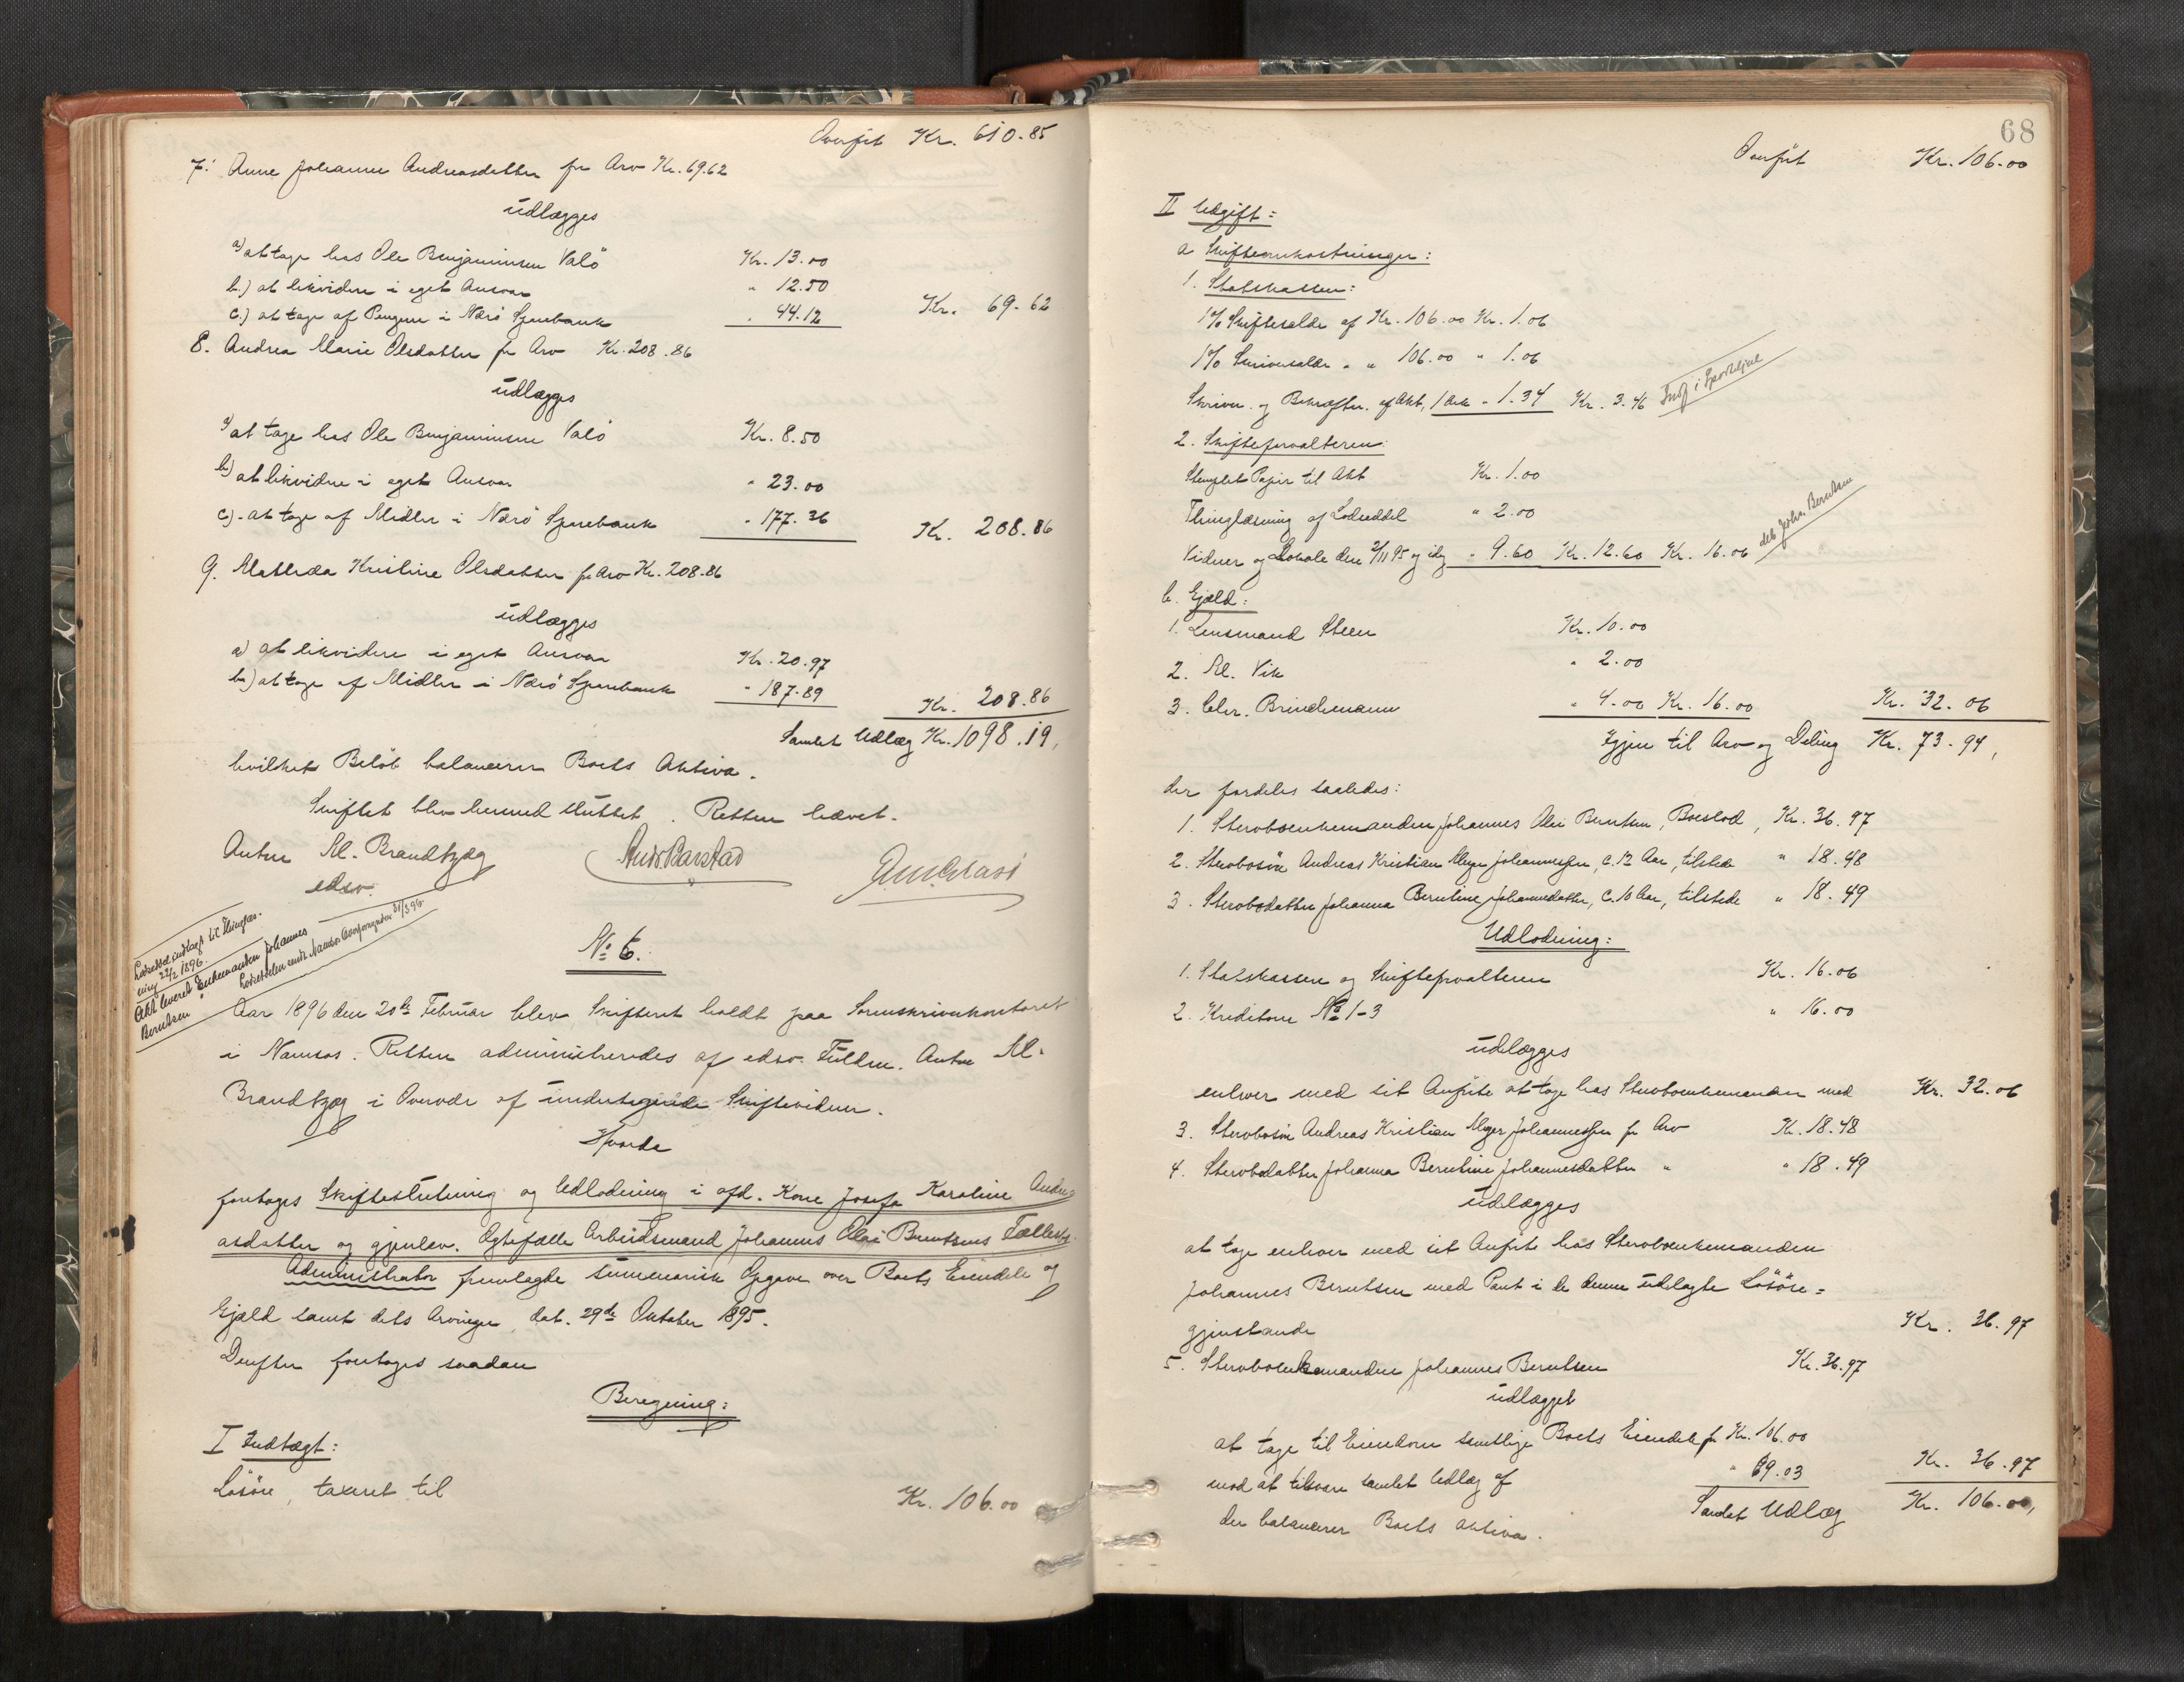 Overført Kr. 610.85
7. Anne Johanne Andreasdatter for Arv Kr. 69.62
udlægges
a) at tage hos Ole Benjaminsen Valø Kr. 13.00
b.) at likvidere i eget Ansvar " 12.50
c.) at tage af Pengene i Nærø Sparebank " 44.12 Kr. 69.62
8. Andrea Marie Olsdatter for Arv Kr. 208.86
udlægges
a) at tage hos Ole Benjaminsen Valø Kr. 8.50
b) at likvidere i eget Ansvar " 23.00
c). at tage af Midler i Nærø Sparebank " 177.36 Kr. 208.86
9. Mathilda Kristine Olsdatter for Arv Kr. 208.86
udlægges
a) at likvidere i eget Ansvar Kr. 20.97
b.) at tage af Midler i Nærø Sparebank " 187.89 Kr. 208.86
Samlet Udlæg Kr. 1098.19,
hvilket Beløb balancerer Boets Aktiva.
Skiftet blev hermed sluttet. Retten hævet.
Anton Kl. Brandtzæg
edsv.
Lodseddel indlagt til Thinglæs-
ning 22/2 1896.
Akt leveret Enkemanden Johannes
Berntsen
31/3 96.
No 6.
Aar 1896 den 20de Februar blev Skifteret holdt paa Sorenskriverkontoret
i Namsos. Retten administreredes af edsv. Fuldm. Anton Kl.
Brandtzæg i Overvær af undertegnede Skiftevidner.
Hvorda
foretoges Skifteslutning og Udlodning i afd. Kone Josefa Karoline Andre-
asdatter og gjenlev. Ægtefælle Arbeidsmand Johannes Olai Berntsens Fællesbo.
Administrator fremlagde summarisk Opgave over Boets Eiendele og
Gjæld samt dets Arvinger, dat. 29de Oktober 1895.
Derefter foretoges saadan
Beregning:
I Indtægt:
Løsøre, taxeret til Kr. 106.00
68
Overført Kr. 106.00
II Udgift:
a Skifteomkostninger:
1. Statskassen:
1% Skiftesalær af Kr. 106.00 Kr. 1.06
1% Skriversalær " " 106.00 " 1.06
Skriver. og Bekræftn. af Akt, 1 Ark " 1.34 Kr. 3.46
2. Skifteforvalteren:
Stemplet Papir til Akt Kr. 1.00
Thinglæsning af Lodseddel " 2.00
Vidner og Lokale den 2/11 95 og idg " 9.60 Kr. 12.60 Kr. 16.06
deb. Johs. Berntsen
b. Gjæld:
1. Lensmand Steen Kr. 10.00
2. Kl. Vik " 2.00
3. Chr. Brinchmann " 4.00 Kr. 16.00 Kr. 32.06
Igjen til Arv og Deling Kr. 73.94,
der fordeles saaledes:
1. Stervboenkemanden Johannes Olai Berntsen, Boeslod, Kr. 36.97
2. Stervbosøn Andreas Kristian Meyer Johannessen, c. 12 Aar, tilstede " 18.48
3. Stervbodatter Johanna Berntine Johannesdatter, c. 10 Aar, tilstede " 18.49
Udlodning:
1. Statskassen og Skifteforvalteren Kr. 16.06
2. Kreditorer No 1-3 " 16.00
udlægges
enhver med sit Anførte at tage hos Stervboenkemanden med Kr. 32.06
3. Stervbosøn Andreas Kristian Meyer Johannessen for Arv Kr. 18.48
4. Stervbodatter Johanna Berntine Johannesdatter " " 18.49
udlægges
at tage enhver med sit Anførte hos Stervboenkemanden
Johannes Berntsen med Pant i de denne udlagte Løsøre=
gjenstande Kr. 36.97
5. Stervboenkemanden Johannes Berntsen Kr. 36.97
udlægges
at tage til Eiendom samtlige Boets Eiendele for Kr. 106.00
mod at tilsvare samlet Udlæg af " 69.03 Kr. 36.97
Samlet Udlæg Kr. 106.00,
der balancerer Boets Aktiva.